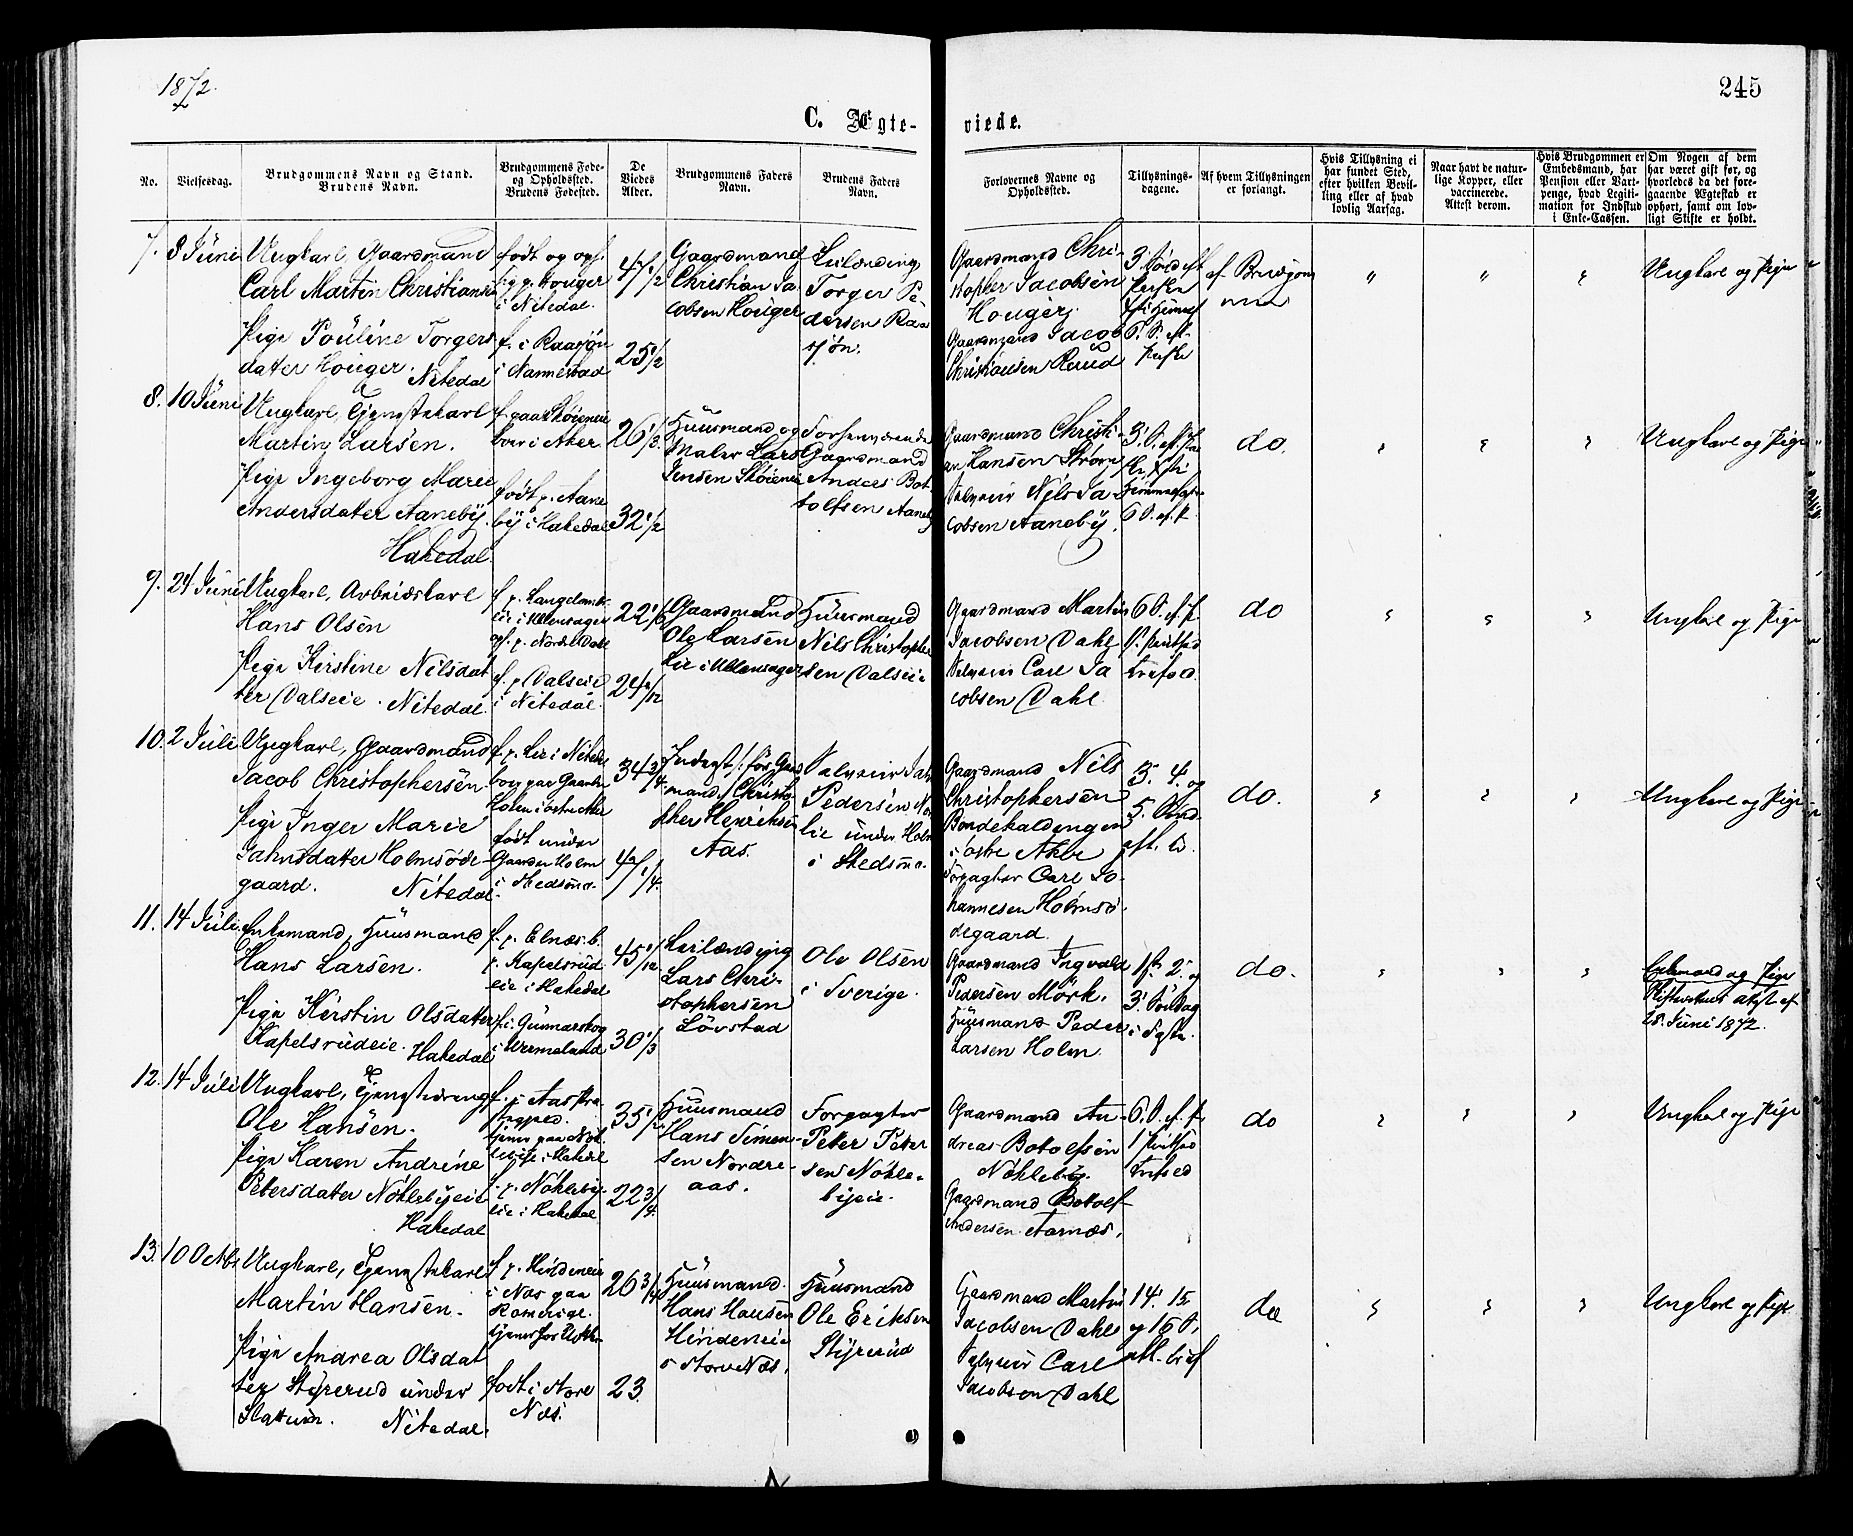 1872.
245
C. Ægte-
viede.
No.
Vielsesdag.
Brudgommens Navn og Stand.
Brudens Navn.
Brudgommens Føde-
og Opholdssted.
Brudens Fødested.
De
Viedes
Alder.
Brudgommens Faders
Navn.
Brudens Faders
Navn.
Forlovernes Navne og
Opholdssted.
Tillysnings-
dagene.
Af hvem Tillysningen
er forlangt.
Hvis Tillysning ei
har fundet Sted,
efter hvilken Bevil-
ling eller af hvad
lovlig Aarsag.
Naar havt de natur-
lige Kopper, eller
vaccinerede.
Attest derom.
Hvis Brudgommen er
Embedsmand, har
Pension eller Vart-
penge, hvad Legiti-
mation for Indskud
i Enke-Cassen.
Om Nogen af dem
har været gift før, og
hvorledes da det fore-
gaaende Ægteskab er
ophørt, samt om lov-
ligt Skifte er holdt.
7.
8 Juni
Ungkarl, Gaardmand
Carl Martin Christiansen
Pige Pouline Torgers
datter Houger.
Nitedal
født og opf.
p. g. Houger
i Nitedal.
f. i Raasjøn
i Nannestad
47 1/2
25 1/2
Gaardmand
Christian Ja
cobsen Houger
Leilænding
Torger Pe
dersen Raa
sjøn.
Gaardmand Chri-
stopher Jacobsen
Houger.
Gaardmand Jacob
Christiansen Ruud
3. Sønd. eft
Paaske
6. S. eft.
Paaske
af Brudgom
men
"
"
"
Ungkarl og Pige
8.
10 Juni
Ungkarl, Tjenestekarl
Martin Larsen.
Pige Ingeborg Marie
Andersdatter Aaneby.
Hakedal.
f. paa Skøieneie
boer i Aker
født p. Aane
by i Hakedal
26 1/3
32 1/2
Huusmand og
Maler Lars
Jensen Skøieneie
Forhenværende
Gaardmand
Andres Bot
tolfsen Aaneby
Gaardmand Christi-
an Hansen Strøm
Selveier Nils Ja
cobsen Aaneby.
6 S. ef. P.
do.
"
"
"
Ungkarl og Pige
9.
24 Juni
Ungkarl, Arbeidskarl
Hans Olsen
Pige Kirstine Nilsdat
ter Dalseie. Nitedal.
i Ullensager
f. p. Dalseie
i Nitedal.
22 1/6
24 1/12
Gaardmand
Ole Larsen
Lie i Ullensager
Huusmand
Nils Christopher
sen Dalseie
Gaardmand Martin
Jacobsen Dahl
Selveier Carl Ja
cobsen Dahl
6 S. ef. P.
do
"
"
"
Ungkarl og Pige
10.
2 Juli
Ungkarl, Gaardmand
Jacob Christophersen.
Pige Inger Marie
Jahnsdatter Holmsøde-
gaard. Nitedal.
f. p. Lie i Nitedal
bor paa Gaarden
Holen i østre Aker
født under
Gaarden Holm
i Skedsmo.
34 3/4
47 1/4
mand / Christo
pher Henriksen
Aas.
Selveier Jahn
Pedersen No
lie under Holm
i Skedsmo.
Gaardmand Nils
Christophersen
Bondekaldengen
i østre Aker
Forpagter Carl Jo
hannesen Holmsø
degaard.
3. 4. og
5. Sønd.
do.
"
"
"
Ungkarl og Pige
11.
14 Juli
Enkemand, Huusmand
Hans Larsen.
Pige Kirstin Olsdatter
Kapelsrudeie. Hakedal
f. p. Elnæs. b.
p. Kapelsrud
eie i Hakedal
f. i Gunnarskog
i Wermeland
45 1/12
30 1/3
Leilænding
Lars Chri-
stophersen
Løvstad
Ole Olsen
i Sverige.
Gaardmand Ingvald
Pedersen Mörk.
Huusmand Peder
Larsen Holm.
1ste 2. og
3. Søndag
do.
"
"
"
Enkemand og Pige
Skifteretens attest af
28. Juni 1872.
12.
14 Juli
Ungkarl, Tjenestedreng
Ole Hansen.
Pige Karen Andrine
Petersdatter Nöklebyeie
Hakedal
f. p. Nökleby-
eie i Hakedal
35
22 3/4
Huusmand
Hans Simen-
sen Nordre-
aas.
Forpagter
Peter Peter
sen Nökle-
byeie.
Gaardmand An-
dreas Botolfsen
Nökleby.
Gaardmand Botolf
Andersen Aarnæs.
6. S. ef. P.
do
"
"
"
Ungkarl og Pige
13.
10 Octbr
Ungkarl, Tjenestekarl
Martin Hansen.
Pige Andrea Olsdat
ter Styrerud under
Slattum. Nitedal.
f. p. Hindeneie
i Næs paa
Romerige.
født i Store
Næs.
26 3/4
23.
Huusmand.
Hans Hansen
Hindeneie
i Store Næs.
Huusmand
Ole Eriksen
Styrerud
Gaardmand Martin
Jacobsen Dahl
Selveier Carl
Jacobsen Dahl
14. 15.
og 16 S.
do
"
"
"
Ungkarl og Pige